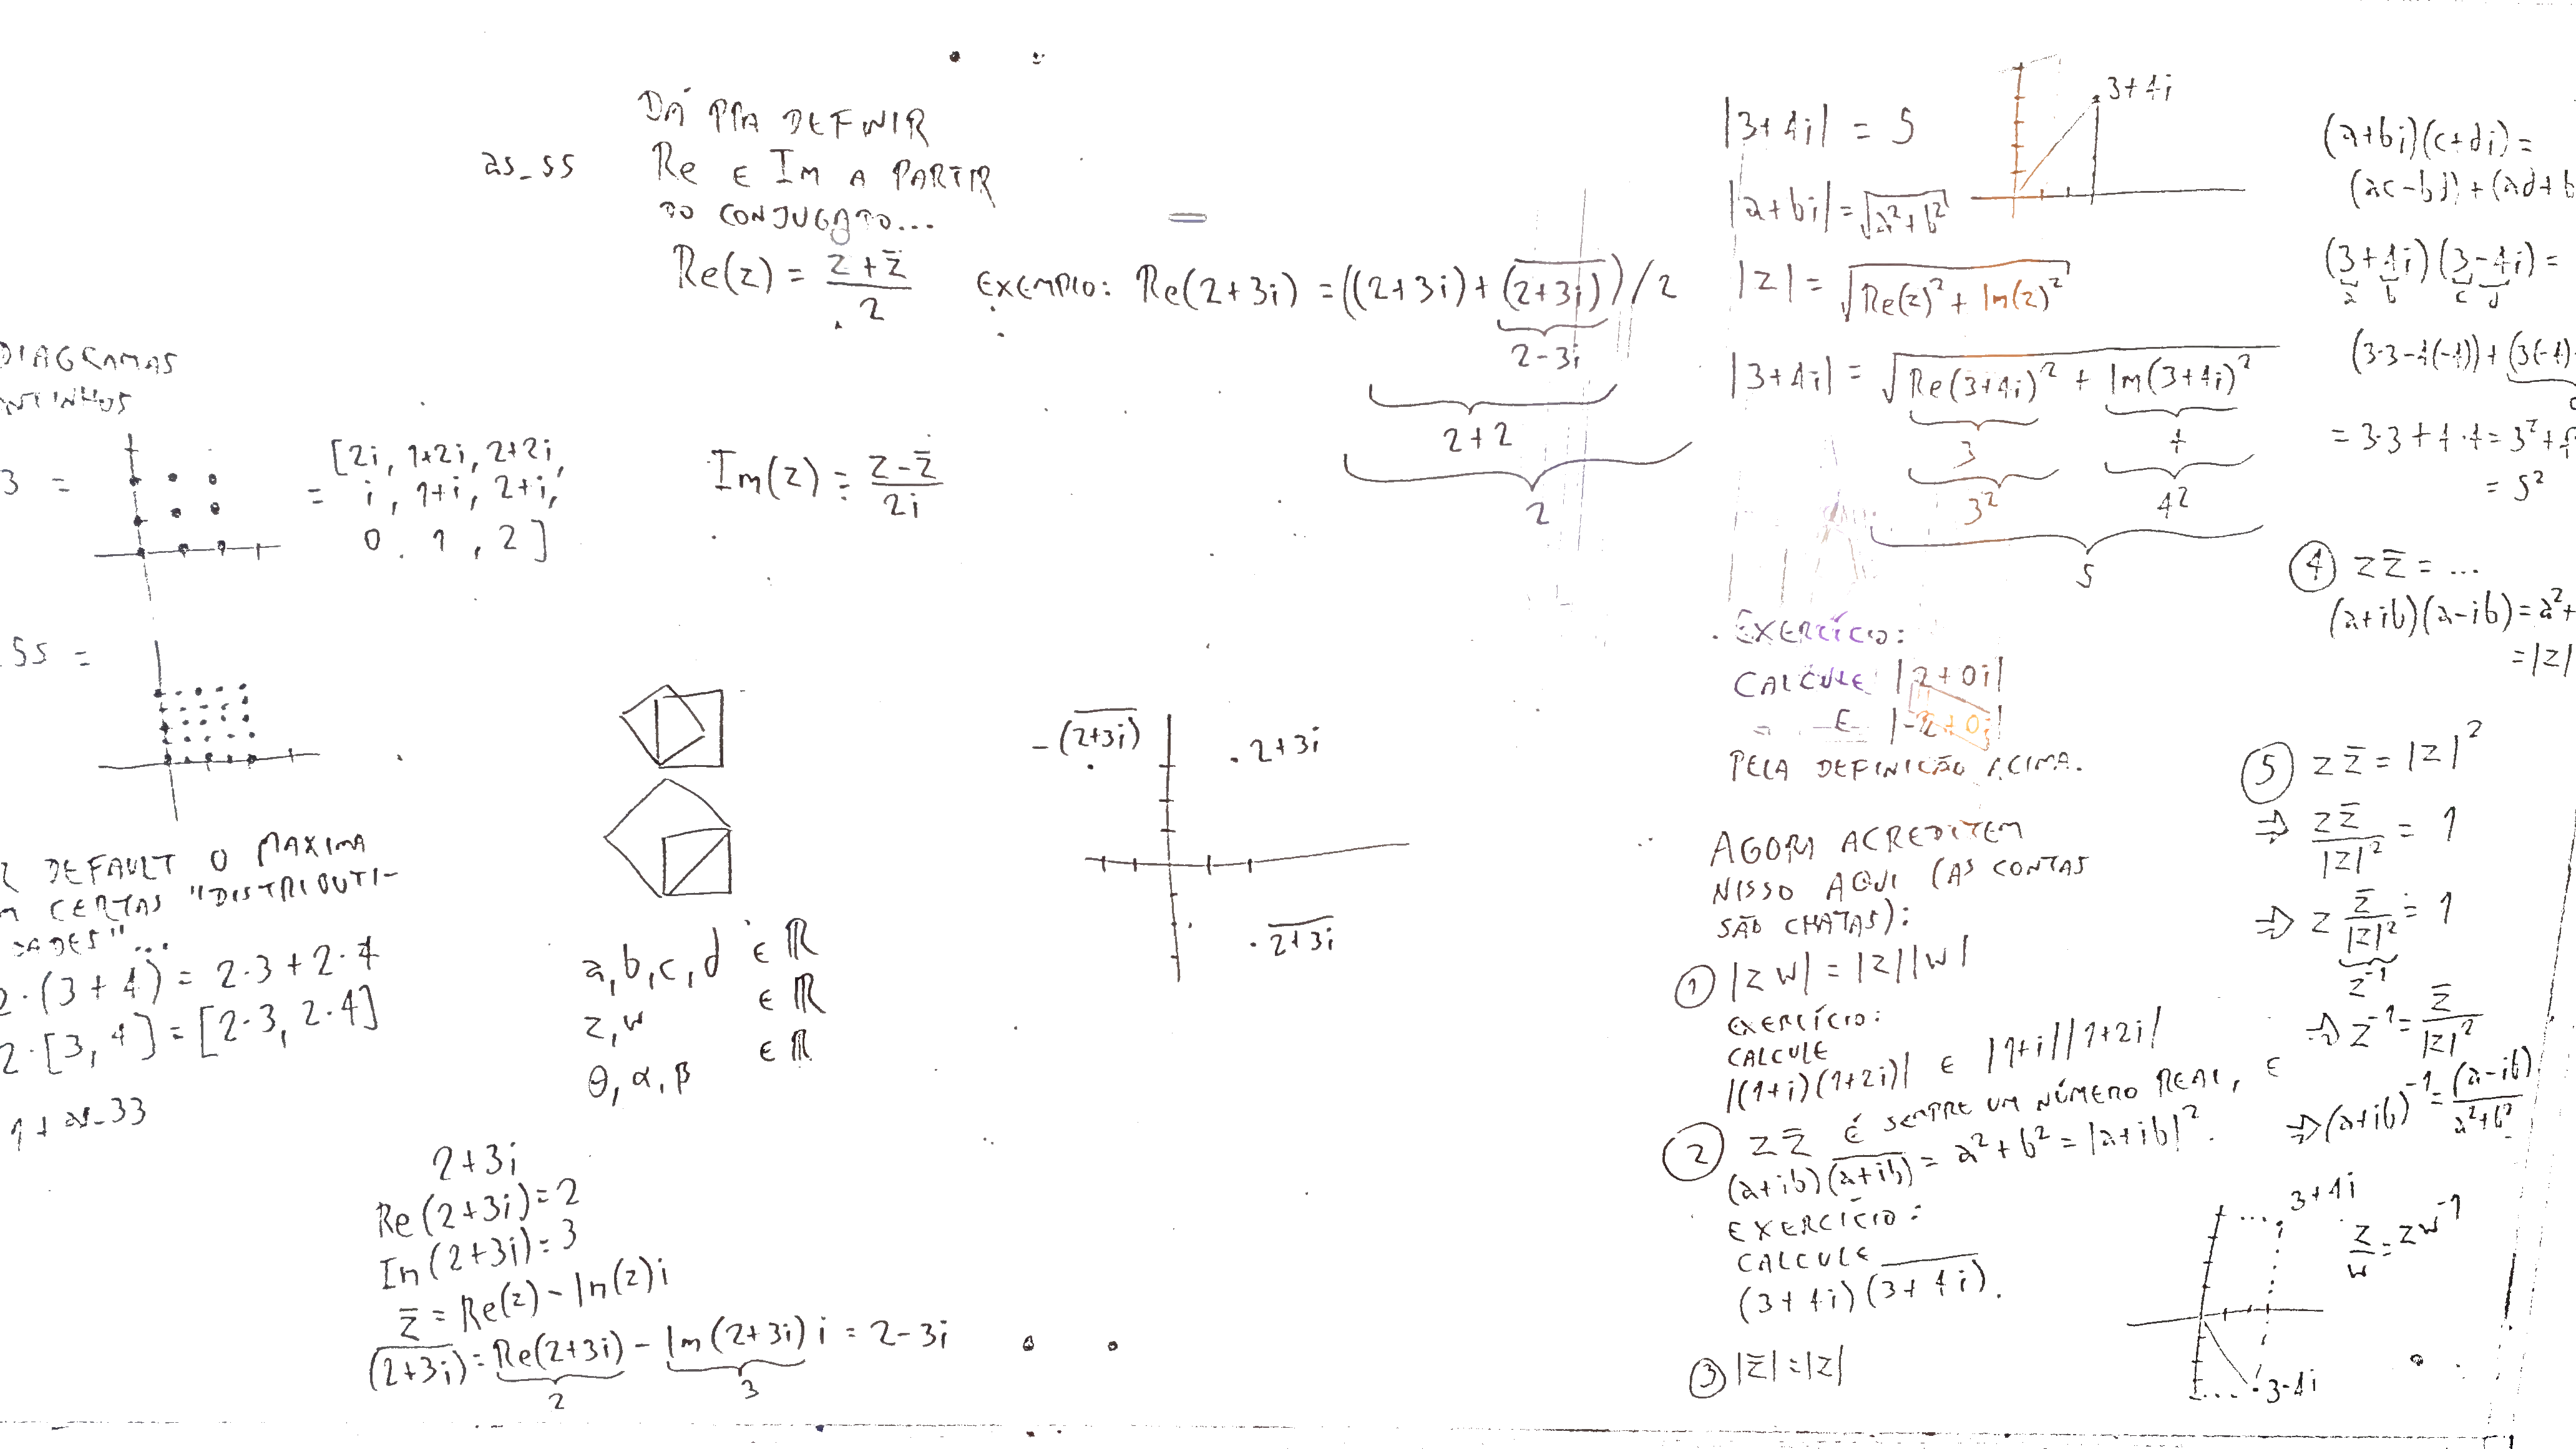 DIAGRAMAS
3 =
= [2i, 1+2i, 2+2i,
i, 1+i, 2+i,
0, 1, 2]
55 =
DEFAULT O MAXIMA
CERTAS "DISTRIBUTI-
DADES"...
2·(3+4) = 2·3+2·4
2·[3,4] = [2·3, 2·4]
1+as_33
as_55
DÁ PRA DEFINIR
Re E Im A PARTIR
DO CONJUGADO...
Re(z) = (z+z̄)/2
EXEMPLO: Re(2+3i) = ((2+3i)+(\overline{2+3i}))/2
2-3i
2+2
2
Im(z) = (z-z̄)/2i
a,b,c,d ∈ ℝ
z,w ∈ ℝ
θ,α,β ∈ ℝ
2+3i
Re(2+3i)=2
Im(2+3i)=3
z̄ = Re(z) - Im(z)i
\overline{(2+3i)} = Re(2+3i) - Im(2+3i) i = 2-3i
2 3
-(\overline{2+3i})
2+3i
\overline{2+3i}
|3+4i| = 5
3+4i
|a+bi| = √(a²+b²)
|z| = √(Re(z)²+Im(z)²)
|3+4i| = √(Re(3+4i)² + Im(3+4i)²)
3 4
3² 4²
5
EXERCÍCIO:
CALCULE |2+0i|
E |-2+0i|
PELA DEFINIÇÃO ACIMA.
AGORA ACREDITEM
NISSO AQUI (AS CONTAS
SÃO CHATAS):
① |zw| = |z||w|
EXERCÍCIO:
CALCULE
|(1+i)(1+2i)| E |1+i||1+2i|
② zz̄ É SEMPRE UM NÚMERO REAL, E
(a+ib)(\overline{a+ib}) = a²+b² = |a+ib|².
EXERCÍCIO:
CALCULE
(3+4i)(\overline{3+4i}).
③ |z̄| = |z|
(a+bi)(c+di) =
(ac-bd)+(ad+b
(3+4i)(3-4i) =
a b c d
(3·3-4(-4))+(3(-4)
= 3·3+4·4 = 3²+4
= 5²
④ zz̄ = ...
(a+ib)(a-ib) = a²+
= |z|
⑤ zz̄ = |z|²
⇒ zz̄/|z|² = 1
⇒ z z̄/|z|² = 1
z⁻¹
⇒ z⁻¹ = z̄/|z|²
⇒ (a+ib)⁻¹ = (a-ib)/(a²+b²)
3+4i
z/w = zw⁻¹
3-4i